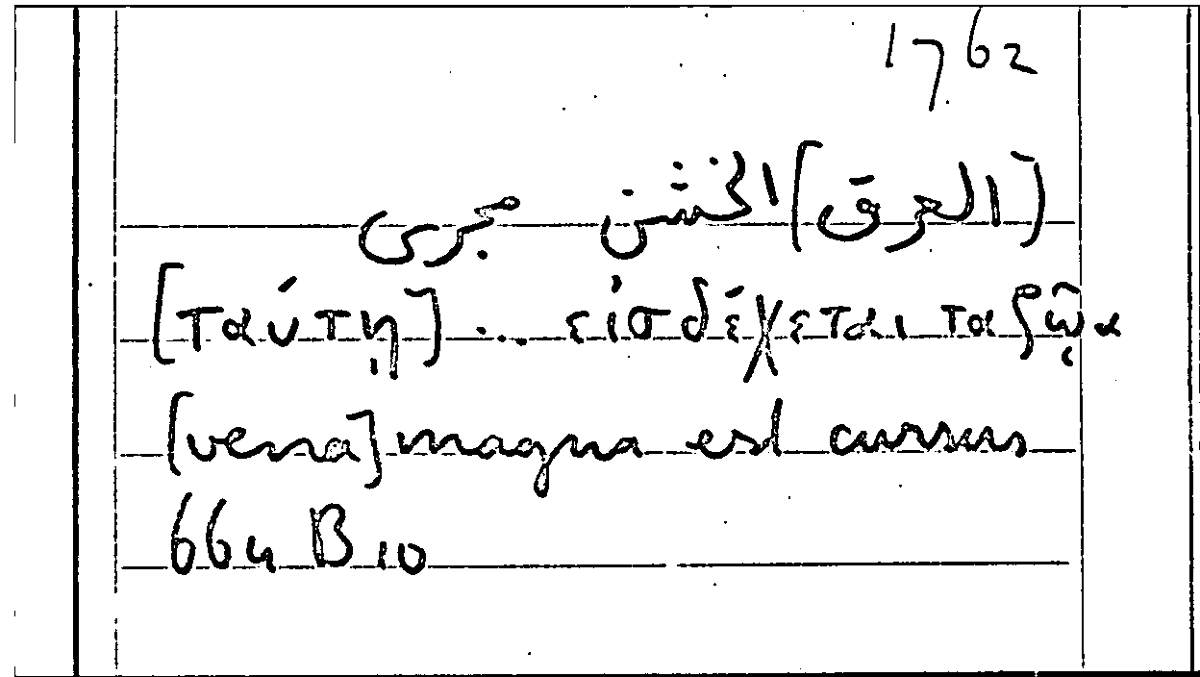 1762
(العرق) الخشن مجرى
[ταύτῃ] ... εἰσδέχεται τα ζῷα
[vena] magna est cursus
664 B 10